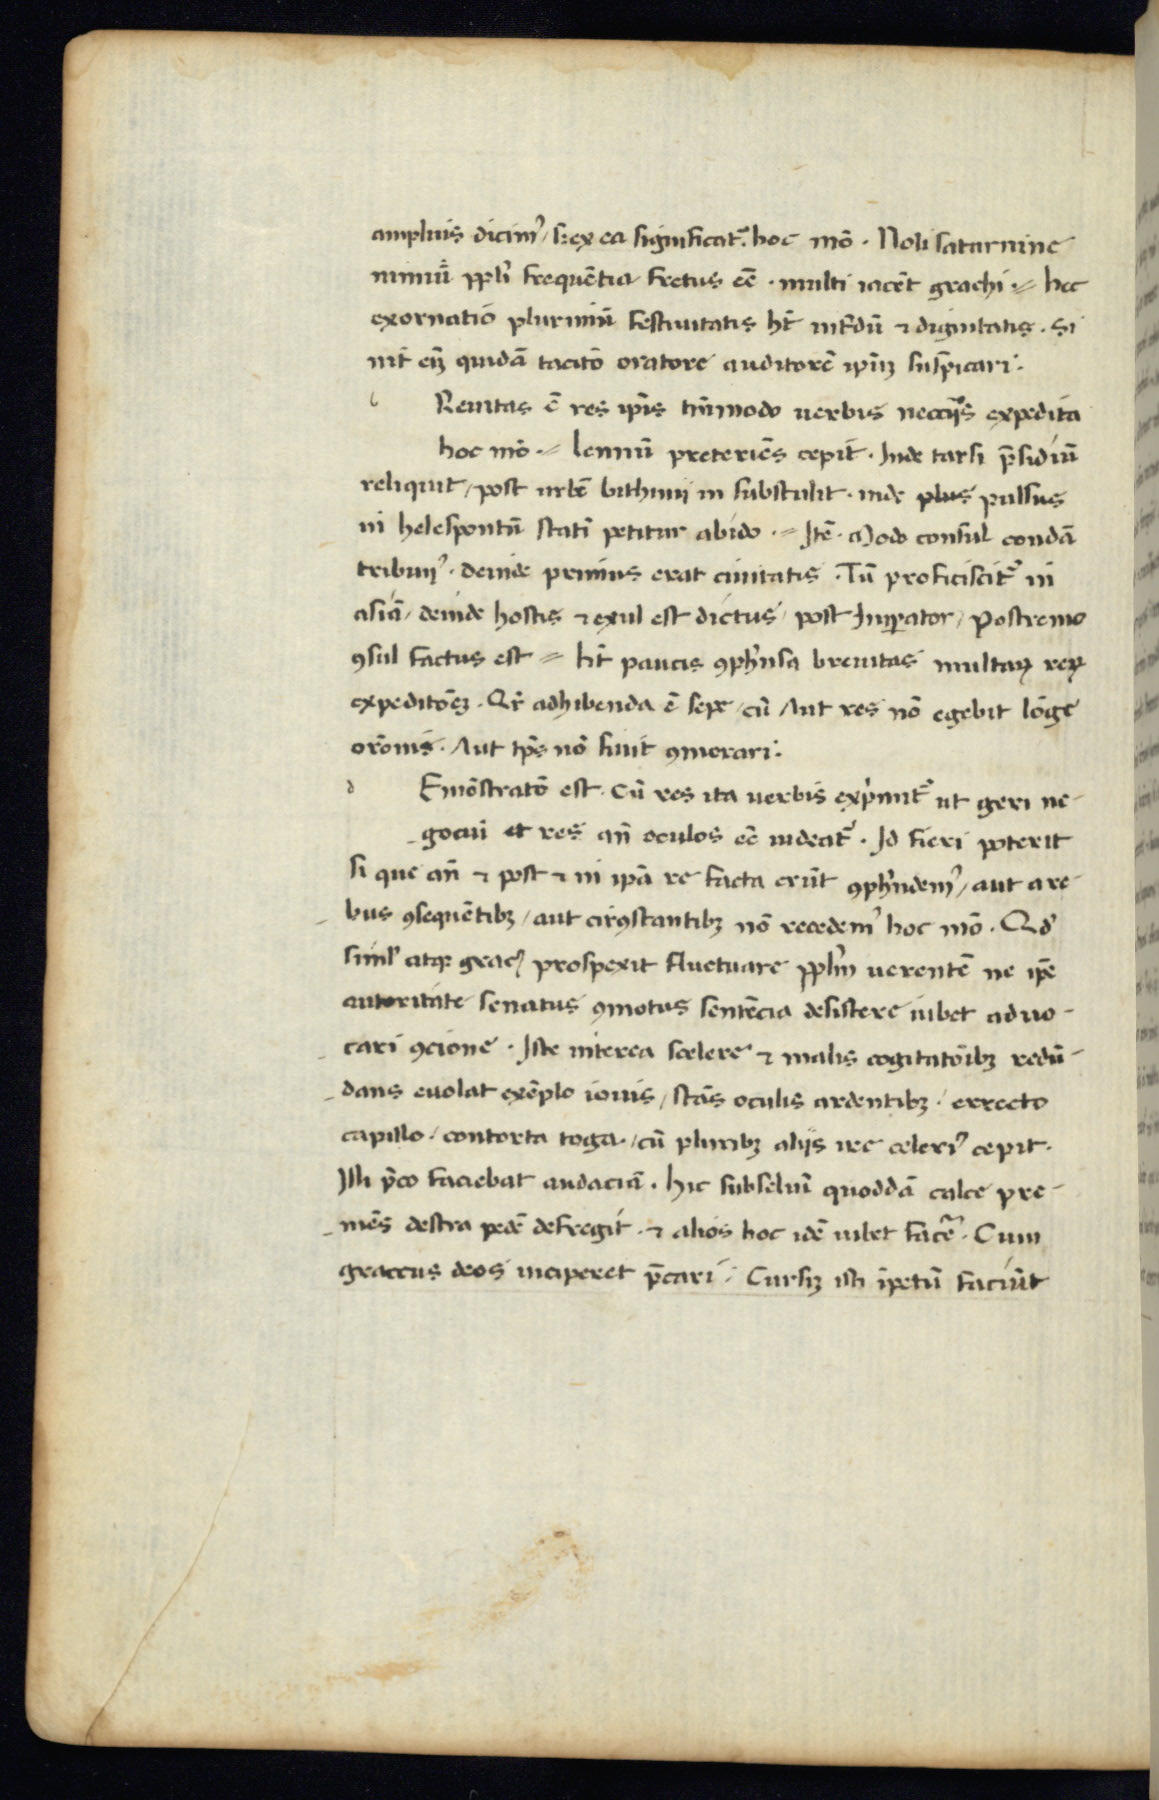 amplius dicim᾽ / sꝫ ex ea significat᷑. hoc mō · Noli saturnine
nimiū ppl̄i frequētia fretus eē · multi iacēt grachi · = hec
exornatio plurimū festiuitatis hꝫ intͬdū ⁊ dignitatis . Si
nit̄ eīꝫ quidā tacitō oratore auditorē ip̄ūꝫ suspicari .
b Reuitas ē res ip̄is tm̄modo uerbis neccͥis expedita
hoc mō · = lemnū preteriēs cepit · Inde tarsi p̄sidiū
reliquit / post urbē bithinij in substulit · inde plus pulsus
in helespontū statī petitur abido · = Itē · Modo consul condā
tribunͥ᾽ · deinde primus erat ciuitatis · Tū proficiscit᷑ in
asiā / deinde hostis ⁊ exul est dictus / post Imꝑator / Postremo
ꝯsul factus est = hꝫ paucis ꝯph̄nsa breuitas multaꝝ reꝝ
expeditōeꝫ . Qr̄ adhibenda ē sepe / cū Aut res nō egebit lōge
orōnis · Aut tp̄s nō sinit ꝯmorari .
d Emōstratō est · cū res ita uerbis exp̄mit᷑ ut geri ne-
gociū et res an̄ oculos eē uideat᷑ . Id fieri poterit
si que an̄ ⁊ post ⁊ in ipā re facta erūt ꝯph̄ndem᾽ / aut a re-
bus ꝯsequētibꝫ / aut cirꝯstantibꝫ nō recedem᾽ hoc mō . Qd᾽
siml᾽ atqꝫ grac᾽ prospexit fluctuare ppl̄m uerentē ne ip̄e
autoritate senatus ꝯmotus sentēcia desistere iubet aduo-
cari ꝯcione · Iste interea scelere ⁊ malis cogitatōibꝫ redū-
dans euolat exēplo iouis / stās oculis ardentibꝫ · errecto
capillo / contorta toga / cū pluribꝫ aliis ire celeri᾽ cepit .
Illi p̄co faciebat audaciā . hic subseliū quoddā calce pre-
mēs destra pedē defregit · ⁊ alios hoc idē iubet facē᷑ . Cum
graccus deos inciperet p̄cari / Cursuꝫ isti īpetū faciūt